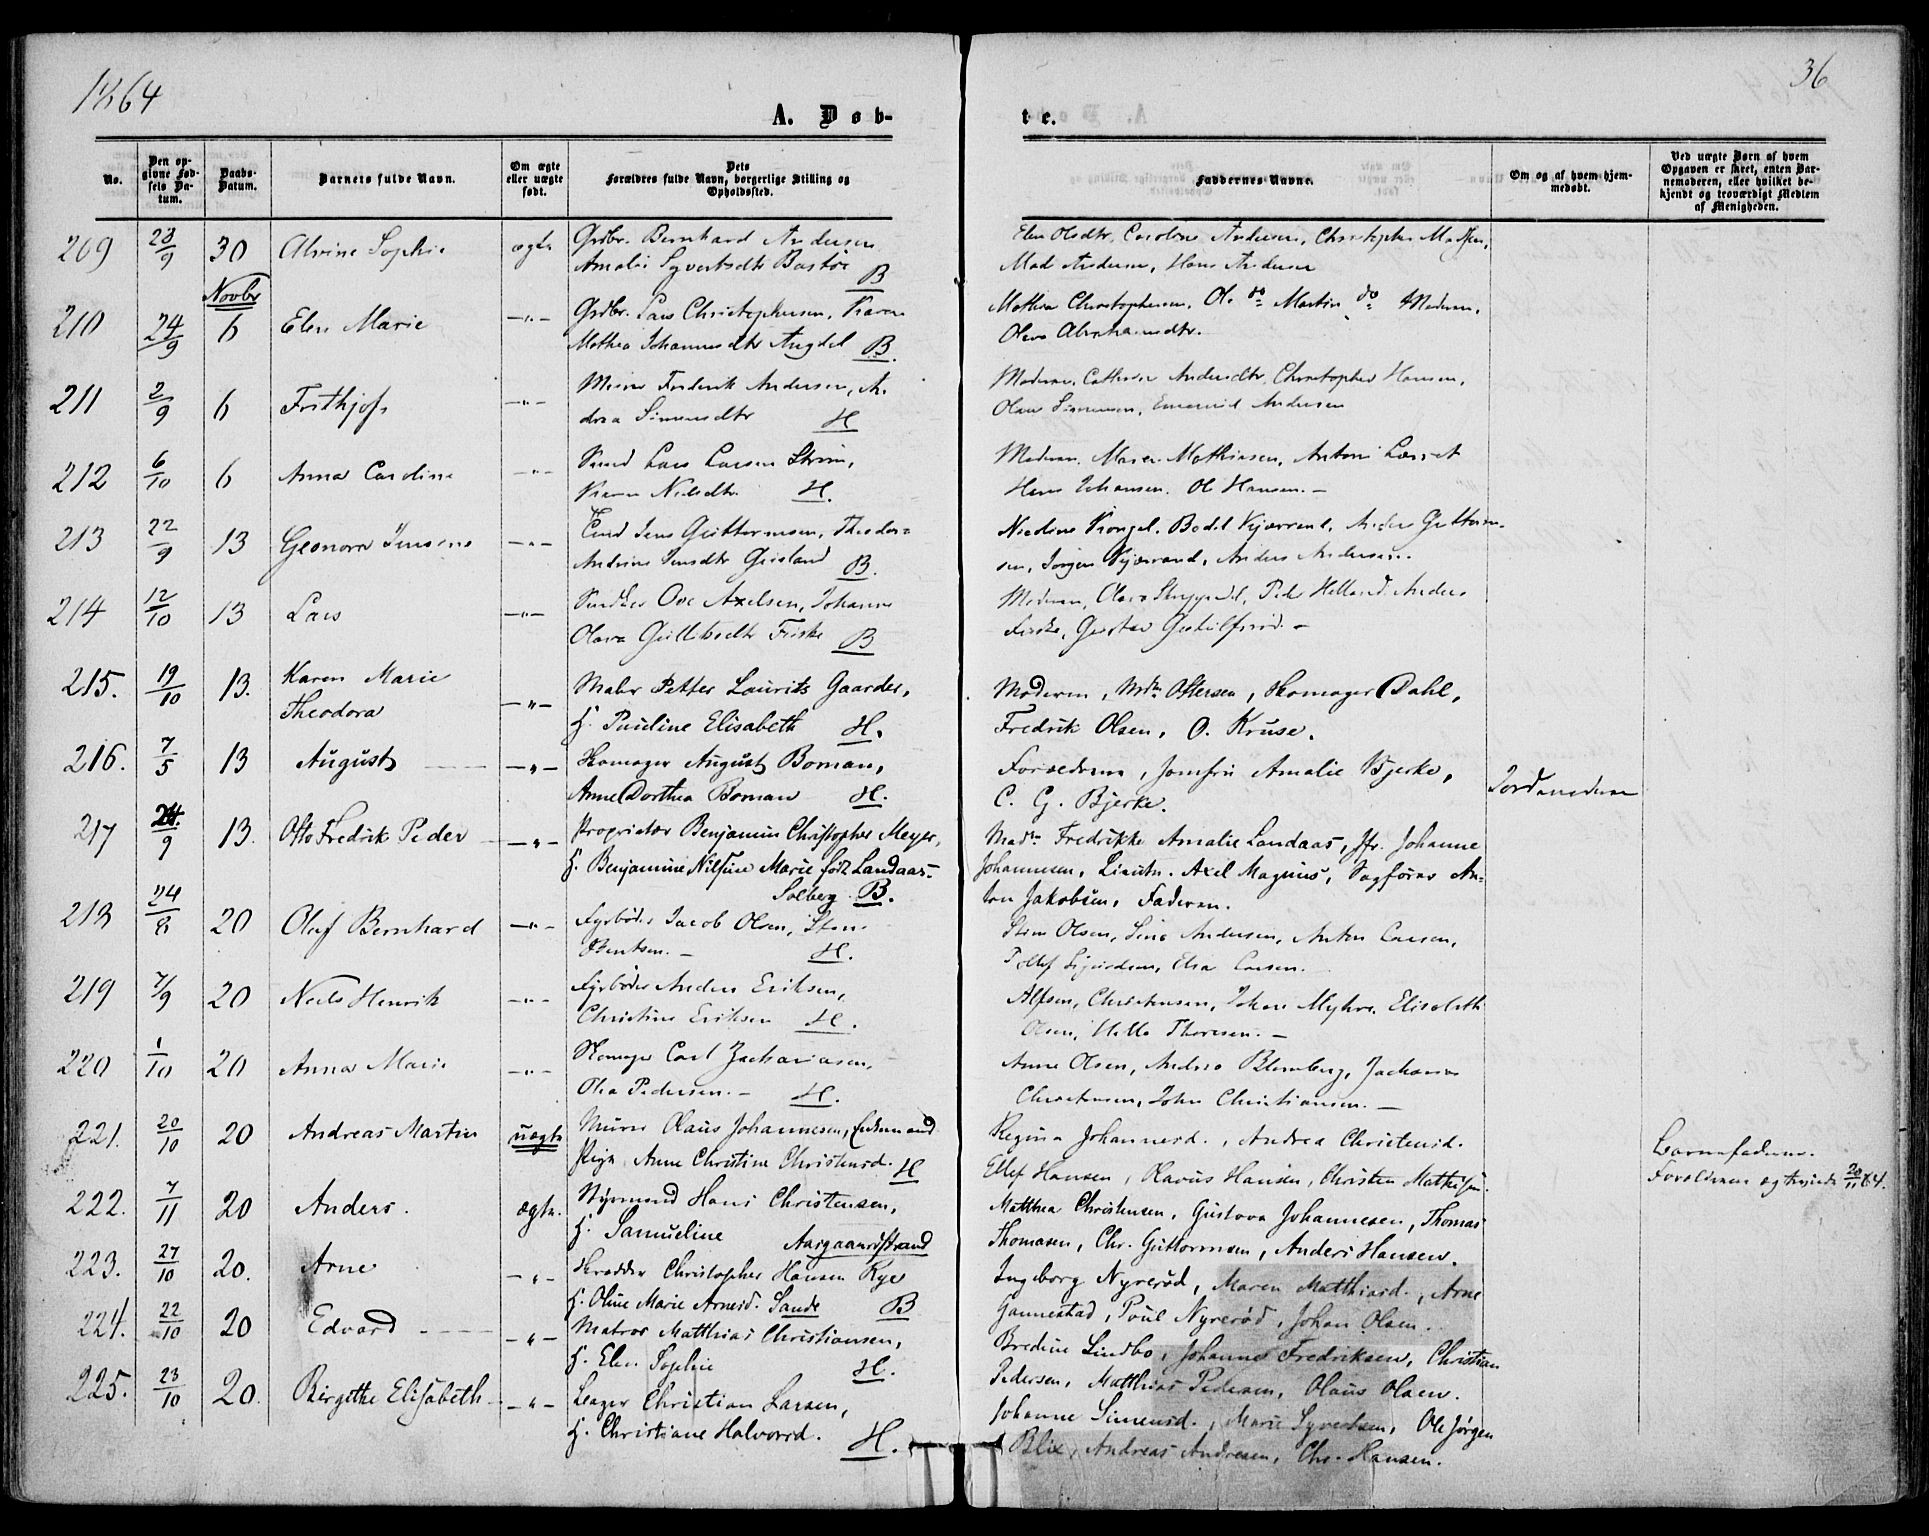 1864
36
A. Døb-
te.
No.
Den op-
givne Fød-
sels Da-
tum.
Daabs-
Datum.
Barnets fulde Navn.
Om ægte
eller uægte
født.
Dets
Forældres fulde Navn, borgerlige Stilling og
Opholdssted.
Faddernes Navne.
Om og af hvem hjem-
medøbt.
Ved uægte Børn af hvem
Opgaven er skeet, enten Bar-
nemoderen, eller hvilket be-
kjendt og troværdigt Medlem
af Menigheden.
209 23/9 30 Alvine Sophie ægte Grdbr. Bernhard Andersen
Amalie Syvertsdtr Bastø B
Elen Olsdtr, Caroline Andersen, Christopher Madsen,
Mad Andersen, Hans Andersen
Novbr
210 24/9 6 Elen Marie —"— Grdbr. Lars Christophersen, Karen
Mathea Johannesdtr Augdal B.
Mathea Christophersen, Ole do Martin do Moderen,
Olava Abrahamsdtr.
211 2/9 6 Frithjof —"— Murer Frederik Andersen, An-
drea Simensdtr H
Moderen, Cathrine Andersdtr, Christopher Hansen,
Olaus Simensen, Andersen
212 6/10 6 Anna Caroline —"— Smed Lars Larsen Strøm,
Karen Nielsdtr. H.
Moderen, Maren Mathiasen, Anton
Hans Johansen. Ole Hansen. —
213 22/9 13 Jensine —"— Jens Guttormsen, Theodora
Andrine Jensdtr B.
Nicoline Bodel Kjærrand, Anders Guttorm-
sen, Jørgen Kjærrand, Anders Andersen.
214 12/10 13 Lars —"— Ove Axelsen, Johanne
Olava Gulliksdtr Friske B
Moderen, Olava Peder Helland, Anders
Friske, Gustav —
215. 19/10 13. Karen Marie
Theodora —"— Maler Petter Laurits Gaarder,
H. Pauline Elisabeth H.
Moderen, Mdm Ottersen, Skomager Dahl,
Fredrik Olsen, O. Kruse.
216. 7/5 13 August —"— Skomager August Boman,
Anne Dorthea Boman H.
Forældrene, Jomfru Amalie Bjerke,
C. G. Bjerke.
Jordemoderen
217 24/9 13. Otto Fredrik Peder —"— Proprietær Benjamin Christopher Meyer,
H. Benjamine Nilsine Marie født Landaas-
Solberg. B.
Madm Fredrikke Amalie Landaas, Jfr. Johanne
Johannesen, Lieutn. Axel Magnus, Sagfører An-
ton Jakobsen, Faderen.
218 24/8 20 Oluf Bernhard —"— Fyrbøder Jacob Olsen,
Bentsen. — H.
Olsen, Line Andersen, Anton Larsen,
Tollef Sigurdsen, Elea Larsen.
219 7/9 20 Neils Henrik —"— Fyrbøder Anders Eriksen,
Christine Eriksen H.
Alfsen, Christensen, Johan Myhre, Elisabeth
Olsen, Thoresen. —
220 1/10 20 Anna Marie —"— Skomager Carl Zachariasen,
Olea Pedersen. — H.
Anne Olsen, Andrea Blomberg, Zacharias
Christensen, John Christiansen. —
221. 20/10 20 Andreas Martin uægte Murer Olaus Johannesen, Enkemand
Pige Anne Christine Christensd. H
Regina Johannesd., Andrea Christensd.
Ellef Hansen, Olavus Hansen, Christen Mathisen.
Barnefaderen.
Forældrene ægteviede 20/11 64.
222. 7/11 20 Anders. ægte. Styrmand Hans Christensen,
H. Samueline Aasgaardstrand
Matthea Christensen, Gustava Johannesen, Thomas
Thomasen, Chr. Guttormsen, Anders Hansen.
223. 27/10 20. Arne —"— Skrædder Christopher Hansen Rye
H. Oline Marie Arnesd. Sande B
Ingeborg Nyrerød, Maren Matthiasd., Arne
Gannestad, Poul Nyrerød, Johan Olsen.
224. 22/10 20 Edvard —"— Matros Matthias Christiansen,
H. Elen Sophie H.
Bredine Lindbo, Johanne Fredriksen, Christian
Pedersen, Matthias Pedersen, Olaus Olsen.
225. 23/10 20. Birgitte Elisabeth —"— Christian Larsen,
H. Christiane Halvorsd. H.
Johanne Simensd., Marie Syvertsen, Ole Jørgen
Blix, Andreas Andresen, Chr. Hansen.